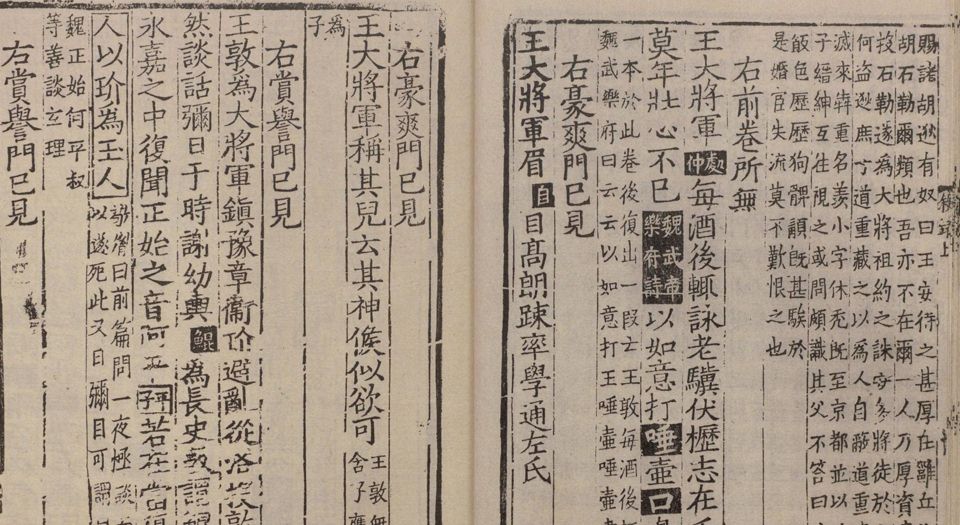 賜諸胡逖有奴曰王安待之甚厚在雍丘
胡石勒爾類也吾亦不在爾一人乃厚資
投石勒遂為大將祖約之誅安多將徒於
何盗逖庶子道重藏之以為人自道重
滅來犇重名羨小字休禿旣至京都並以
子縉紳互往視之或問頗識其父不答曰
飯色歷歷狗髀顋旣甚駭於
是婚宦失流莫不歎恨之也
右前卷所無
王大將軍敦仲每酒後輙詠老驥伏櫪志在
莫年壯心不已魏武帝樂府詩以如意打唾壺口
一本於此卷後復出一段云王敦每酒後
魏武樂府曰云云以如意打唾壺唾壺
右豪爽門已見
王大將軍眉自目高朗踈率學通左氏
右豪爽門已見
王大將軍稱其兒云其神候似欲可王敦無
含子應
為
子
右賞譽門已見
王敦為大將軍鎮豫章衞玠避亂從洛投敦
然談話彌日于時謝幼輿鯤為長史敦謂鯤
永嘉之中復聞正始之音何平若在當復
人以玠為玉人
曰前篇問一夜極談
以遂死此又曰彌日可謂
魏正始何平叔
等善談玄理
右賞譽門已見